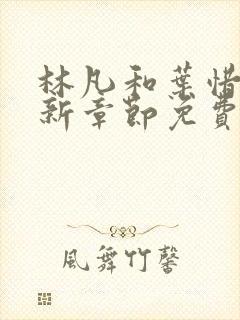 林凡和葉惜
新章節免費
風舞竹馨